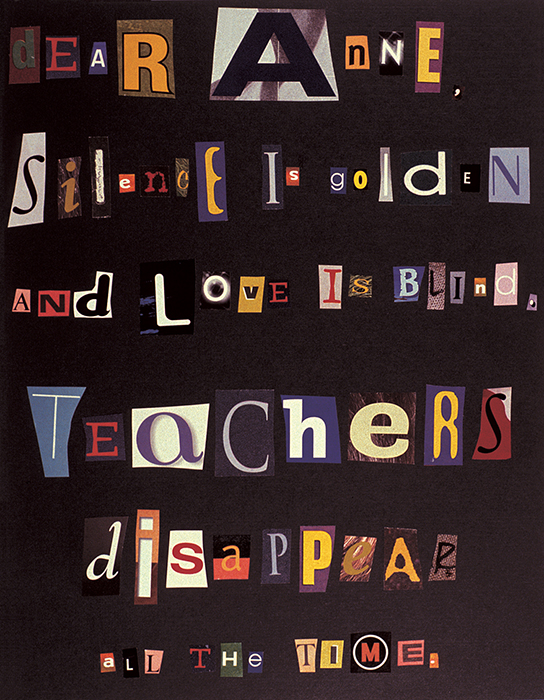 dEAR AnNE,
SilencE Is goldeN
AND LOvE Is BLInd,
TEaCheRS
disapPeAR
aLL THe TIME.